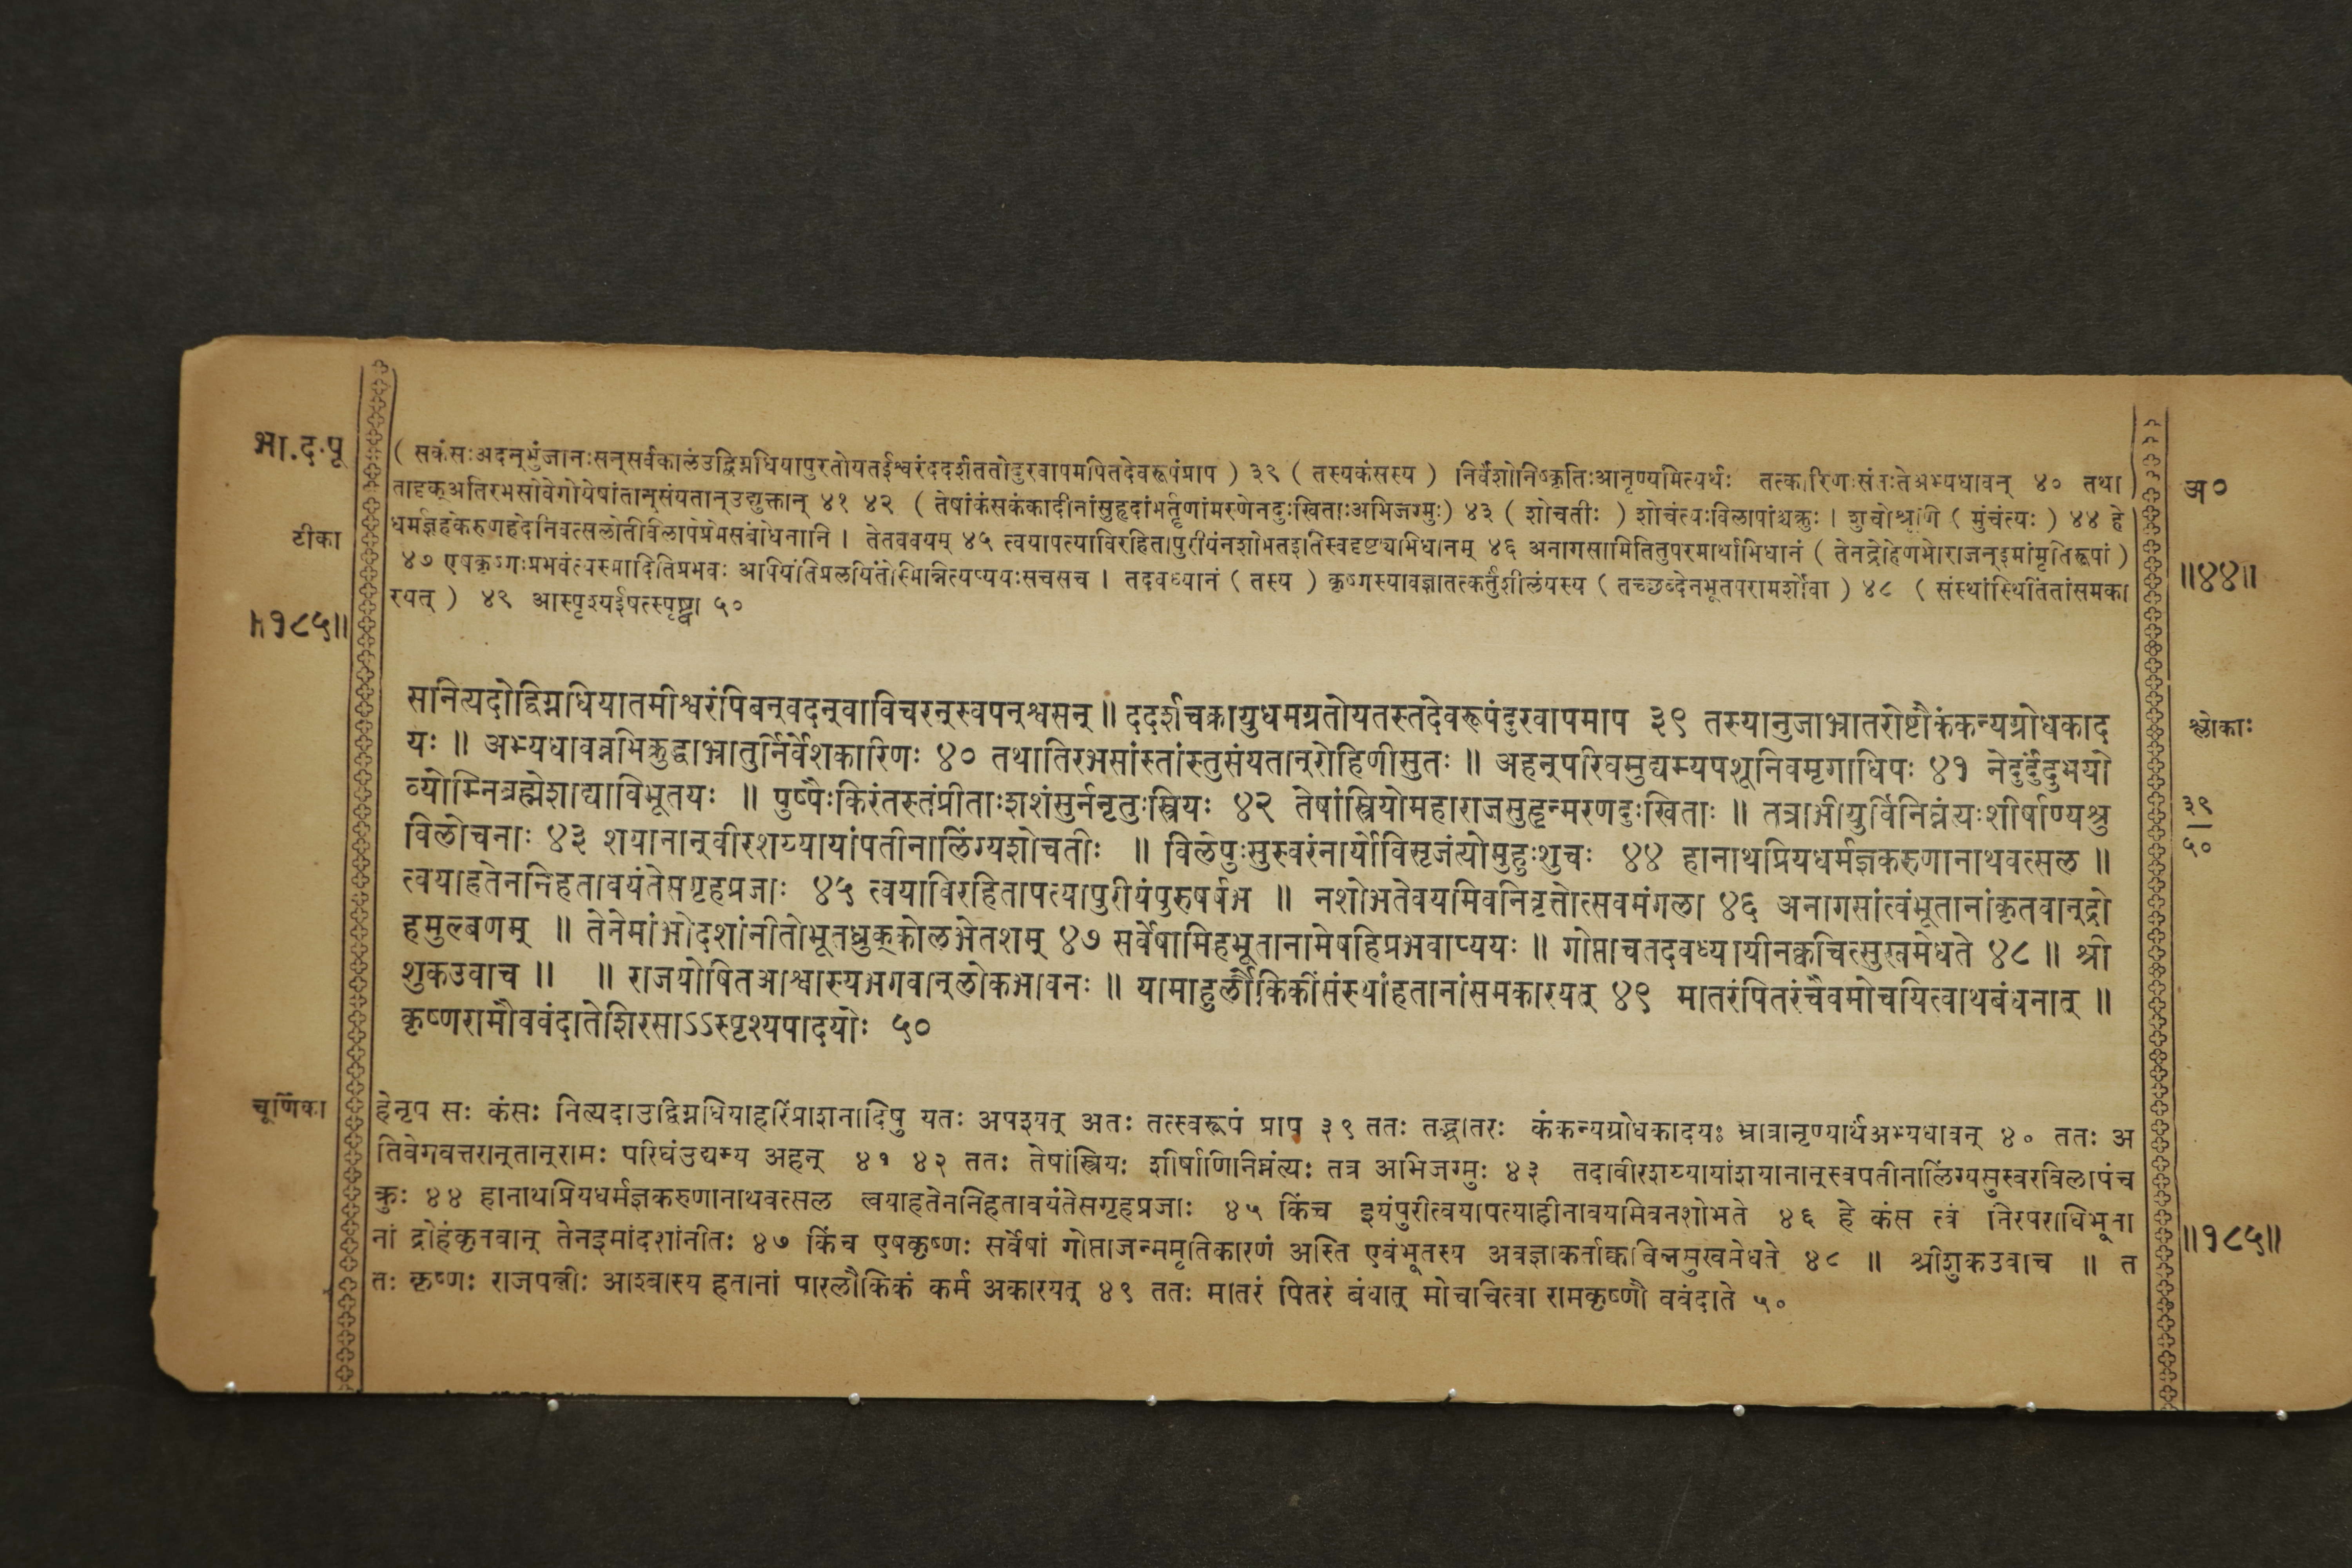 भा.द.पू
( सकंसःअदन्भुंजानःसन्सर्वकालंउद्विग्नधियापुरतोयतईश्वरंददर्शततोदुरवापमपितदेवरूपंप्राप ) ३९ ( तस्यकंसस्य ) निर्वेशोनिष्कृतिःआनृण्यमित्यर्थः तत्कारिणःसंतःतेअभ्यधावन् ४० तथा
तादृक्अतिरभसोवेगोयेषांतान्संयतान्उद्युक्तान् ४१ ४२ ( तेषांकंसकंकादीनांसुहृदांभर्तृणांमरणेनदुःखिताःअभिजग्मुः) ४३ ( शोचतीः ) शोचंत्यःविलापांश्चक्रुः । शुचोश्रूणि ( मुंचंत्यः ) ४४ हे
धर्मज्ञहेकरुणहेदेनिवत्सलोतिविलापेप्रेमसंबोधनानि । तेतववयम् ४५ त्वयापत्याविरहितापुरीयंनशोभतइतिस्वदृष्ट्याभिधानम् ४६ अनागसामितितुपरमार्थाभिधानं ( तेनद्रोहेणभोराजन्इमांमृतिरूपां )
४७ एषकृष्णःप्रभवंत्यस्मादितिप्रभवः आपियंतिप्रलयंयांतोस्मिन्नित्यप्ययःसचसच । तदवध्यानं ( तस्य ) कृष्णस्यावज्ञातत्कर्तुंशीलंयस्य ( तच्छब्देनभूतपरामर्शोवा ) ४८ ( संस्थांस्थितिंतांसमका
रयत् ) ४९ आस्पृश्यईषत्स्पृष्ट्वा ५०
टीका
॥१८५॥
अ०
॥४४॥
सनित्यदोद्विग्नधियातमीश्वरंपिबन्वदन्वाविचरन्स्वपन्श्वसन् ॥ ददर्शचक्रायुधमग्रतोयतस्तदेवरूपंदुरवापमाप ३९ तस्यानुजाभ्रातरोष्टौकंकन्यग्रोधकाद
यः ॥ अभ्यधावन्नभिक्रुद्धाभ्रातुर्निर्वेशकारिणः ४० तथातिरभसांस्तांस्तुसंयतान्रोहिणीसुतः ॥ अहन्परिघमुद्यम्यपशूनिवमृगाधिपः ४१ नेदुर्दुंदुभयो
व्योम्निब्रह्मेशाद्याविभूतयः ॥ पुष्पैःकिरंतस्तंप्रीताःशशंसुर्ननृतुःस्त्रियः ४२ तेषांस्त्रियोमहाराजसुहृन्मरणदुःखिताः ॥ तत्राभीयुर्विनिघ्नंत्यःशीर्षाण्यश्रु
विलोचनाः ४३ शयानान्वीरशय्यायांपतीनालिंग्यशोचतीः ॥ विलेपुःसुस्वरंनार्योविसृजंत्योमुहुःशुचः ४४ हानाथप्रियधर्मज्ञकरुणानाथवत्सल ॥
त्वयाहतेननिहतावयंतेसगृहप्रजाः ४५ त्वयाविरहितापत्यापुरीयंपुरुषर्षभ ॥ नशोभतेवयमिवनिवृत्तोत्सवमंगला ४६ अनागसांत्वंभूतानांकृतवान्द्रो
हमुल्बणम् ॥ तेनेमांभोदशांनीतोभूतध्रुक्कोलभेतशम् ४७ सर्वेषामिहभूतानामेषहिप्रभवाप्ययः ॥ गोप्ताचतदवध्यायीनक्वचित्सुखमेधते ४८ ॥ श्री
शुकउवाच ॥ ॥ राजयोषितआश्वास्यभगवान्लोकभावनः ॥ यामाहुर्लौकिकींसंस्थांहतानांसमकारयत् ४९ मातरंपितरंचैवमोचयित्वाथबंधनात् ॥
कृष्णरामौववंदातेशिरसाऽऽस्पृश्यपादयोः ५०
श्लोकाः
३९
५०
चूर्णिका
हेनृप सः कंसः नित्यदाउद्विग्नधियाहरिंप्राशनादिषु यतः अपश्यत् अतः तत्स्वरूपं प्राप ३९ ततः तद्भ्रातरः कंकन्यग्रोधकादयः भ्रात्रानृण्यार्थअभ्यधावन् ४० ततः अ
तिवेगवत्तरान्तान्रामः परिघंउद्यम्य अहन् ४१ ४२ ततः तेषांस्त्रियः शीर्षाणिनिघ्नंत्यः तत्र अभिजग्मुः ४३ तदावीरशय्यायांशयानान्स्वपतीनालिंग्यसुस्वरविलापंच
क्रुः ४४ हानाथप्रियधर्मज्ञकरुणानाथवत्सल त्वयाहतेननिहतावयंतेसगृहप्रजाः ४५ किंच इयंपुरीत्वयापत्याहीनावयमिवनशोभते ४६ हे कंस त्वं निरपराधिभूता
नां द्रोहंकृतवान् तेनइमांदशांनीतः ४७ किंच एषकृष्णः सर्वेषां गोप्ताजन्ममृतिकारणं अस्ति एवंभूतस्य अवज्ञाकर्ताक्वचिन्नसुखमेधते ४८ ॥ श्रीशुकउवाच ॥ त
तः कृष्णः राजपत्नीः आश्वास्य हतानां पारलौकिकं कर्म अकारयत् ४९ ततः मातरं पितरं बंधात् मोचयित्वा रामकृष्णौ ववंदाते ५०
॥१८५॥